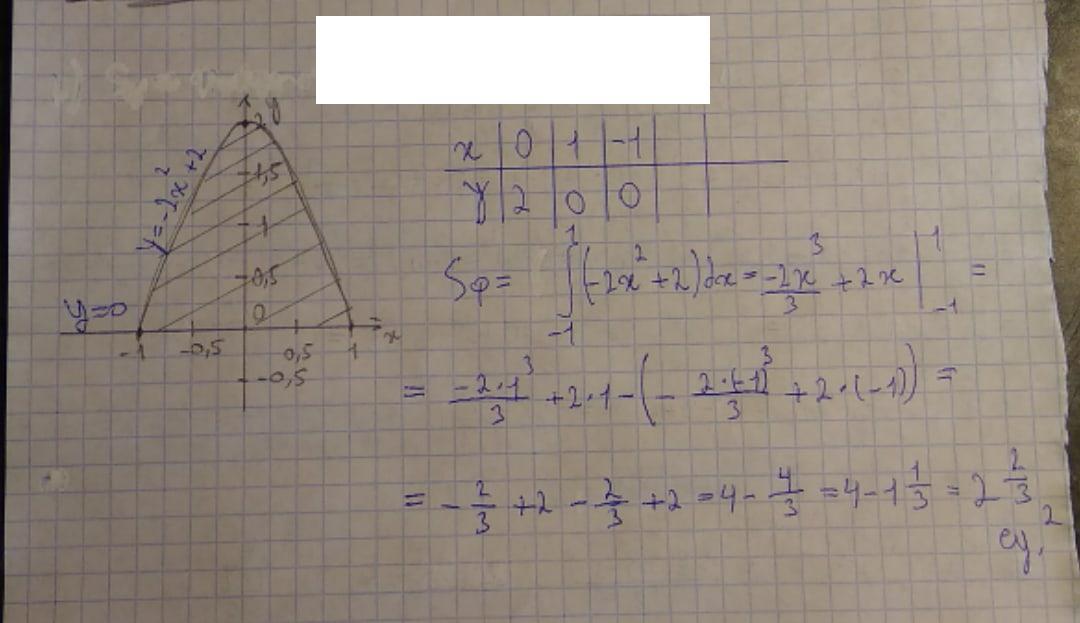 y
2
y=-2x²+2
1,5
1
0,5
y=0
0
-1 -0,5 0,5 1 x
-0,5
x | 0 | 1 | -1
y | 2 | 0 | 0
Sφ = ∫₋₁¹ (-2x²+2)dx = -2x³/3 + 2x |₋₁¹ =
= -2·1³/3 + 2·1 - (- 2·(-1)³/3 + 2·(-1)) =
= - 2/3 + 2 - 2/3 + 2 = 4 - 4/3 = 4 - 1 1/3 = 2 2/3
ед.²